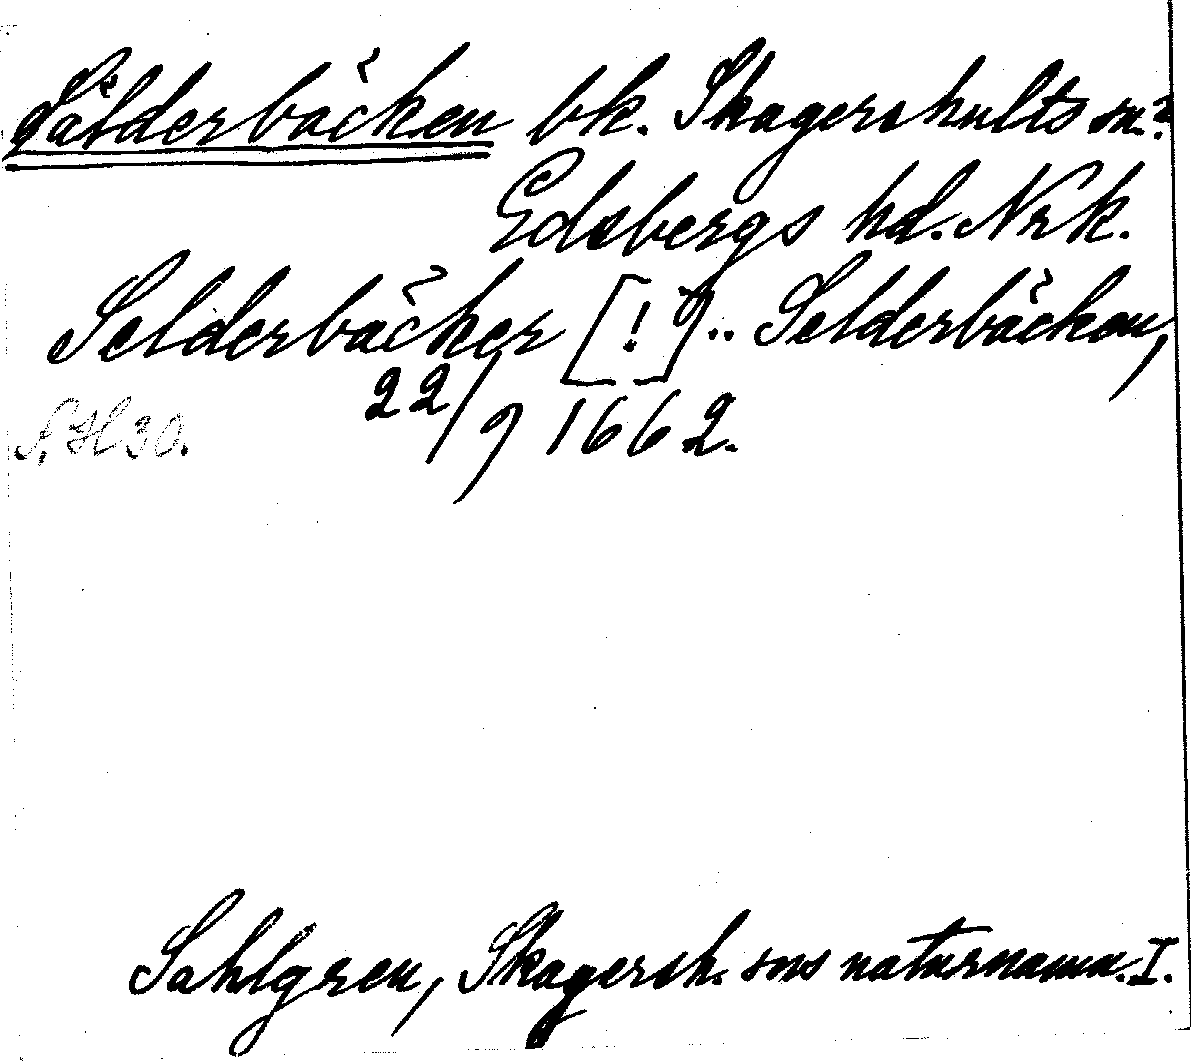 Sälderbäcken bk. Skagershults sn?
Edsbergs hd. Nrk.
Selderbäcker [!] .. Selderbäcken,
22/9 1662.
N. H 30.
Sahlgren, Skagersh. sns naturnamn. I.